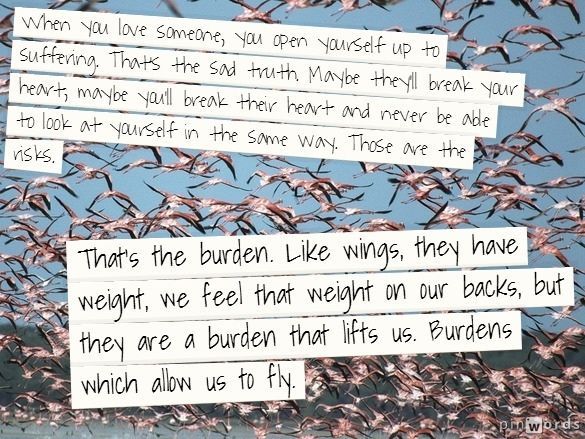 When you love someone, you open yourself up to
suffering. That's the sad truth. Maybe they'll break your
heart, maybe you'll break their heart and never be able
to look at yourself in the same way. Those are the
risks.
That's the burden. Like wings, they have
weight, we feel that weight on our backs, but
they are a burden that lifts us. Burdens
which allow us to fly.
pinwords